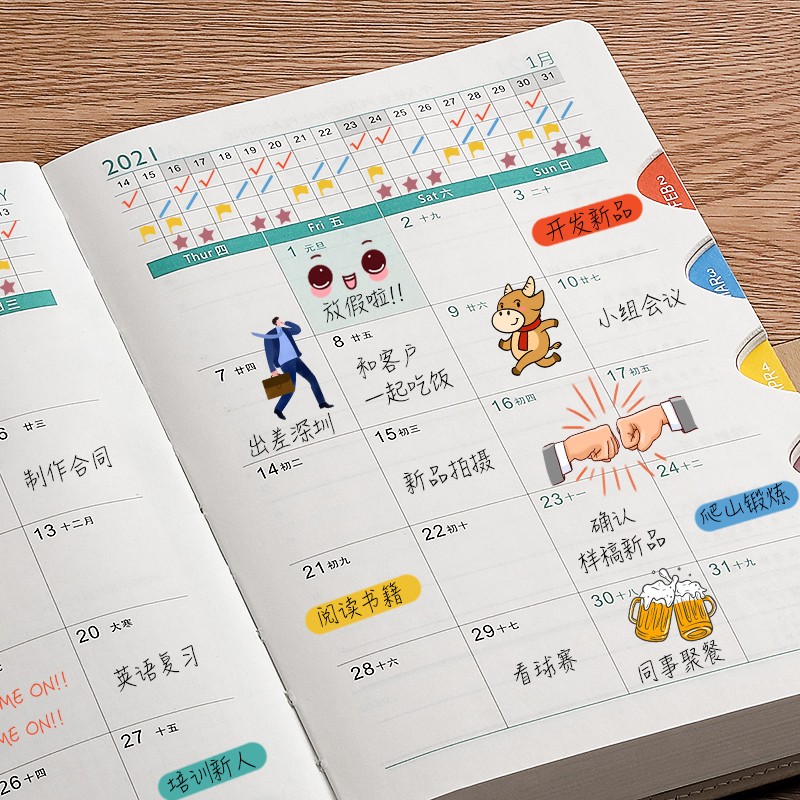 Y
13
三
6 廿三
制作合同
13 十二月
20 大寒
英语复习
ME ON!!
ME ON!!
27 十五
培训新人
26 十四
1月
2021
14 15 16 17 18 19 20 21 22 23 24 25 26 27 28 29 30 31
Thur 四 Fri 五 Sat 六 Sun 日
1 元旦
放假啦!!
2 十九
3 二十
开发新品
7 廿四
出差深圳
8 廿五
和客户
一起吃饭
9 廿六
10 廿七
小组会议
14 初二
15 初三
新品拍摄
16 初四
17 初五
21 初九
阅读书籍
22 初十
23 十一
确认
样稿新品
24 十二
爬山锻炼
28 十六
29 十七
看球赛
30 十八
同事聚餐
31 十九
FEB 2
MAR 3
APR 4